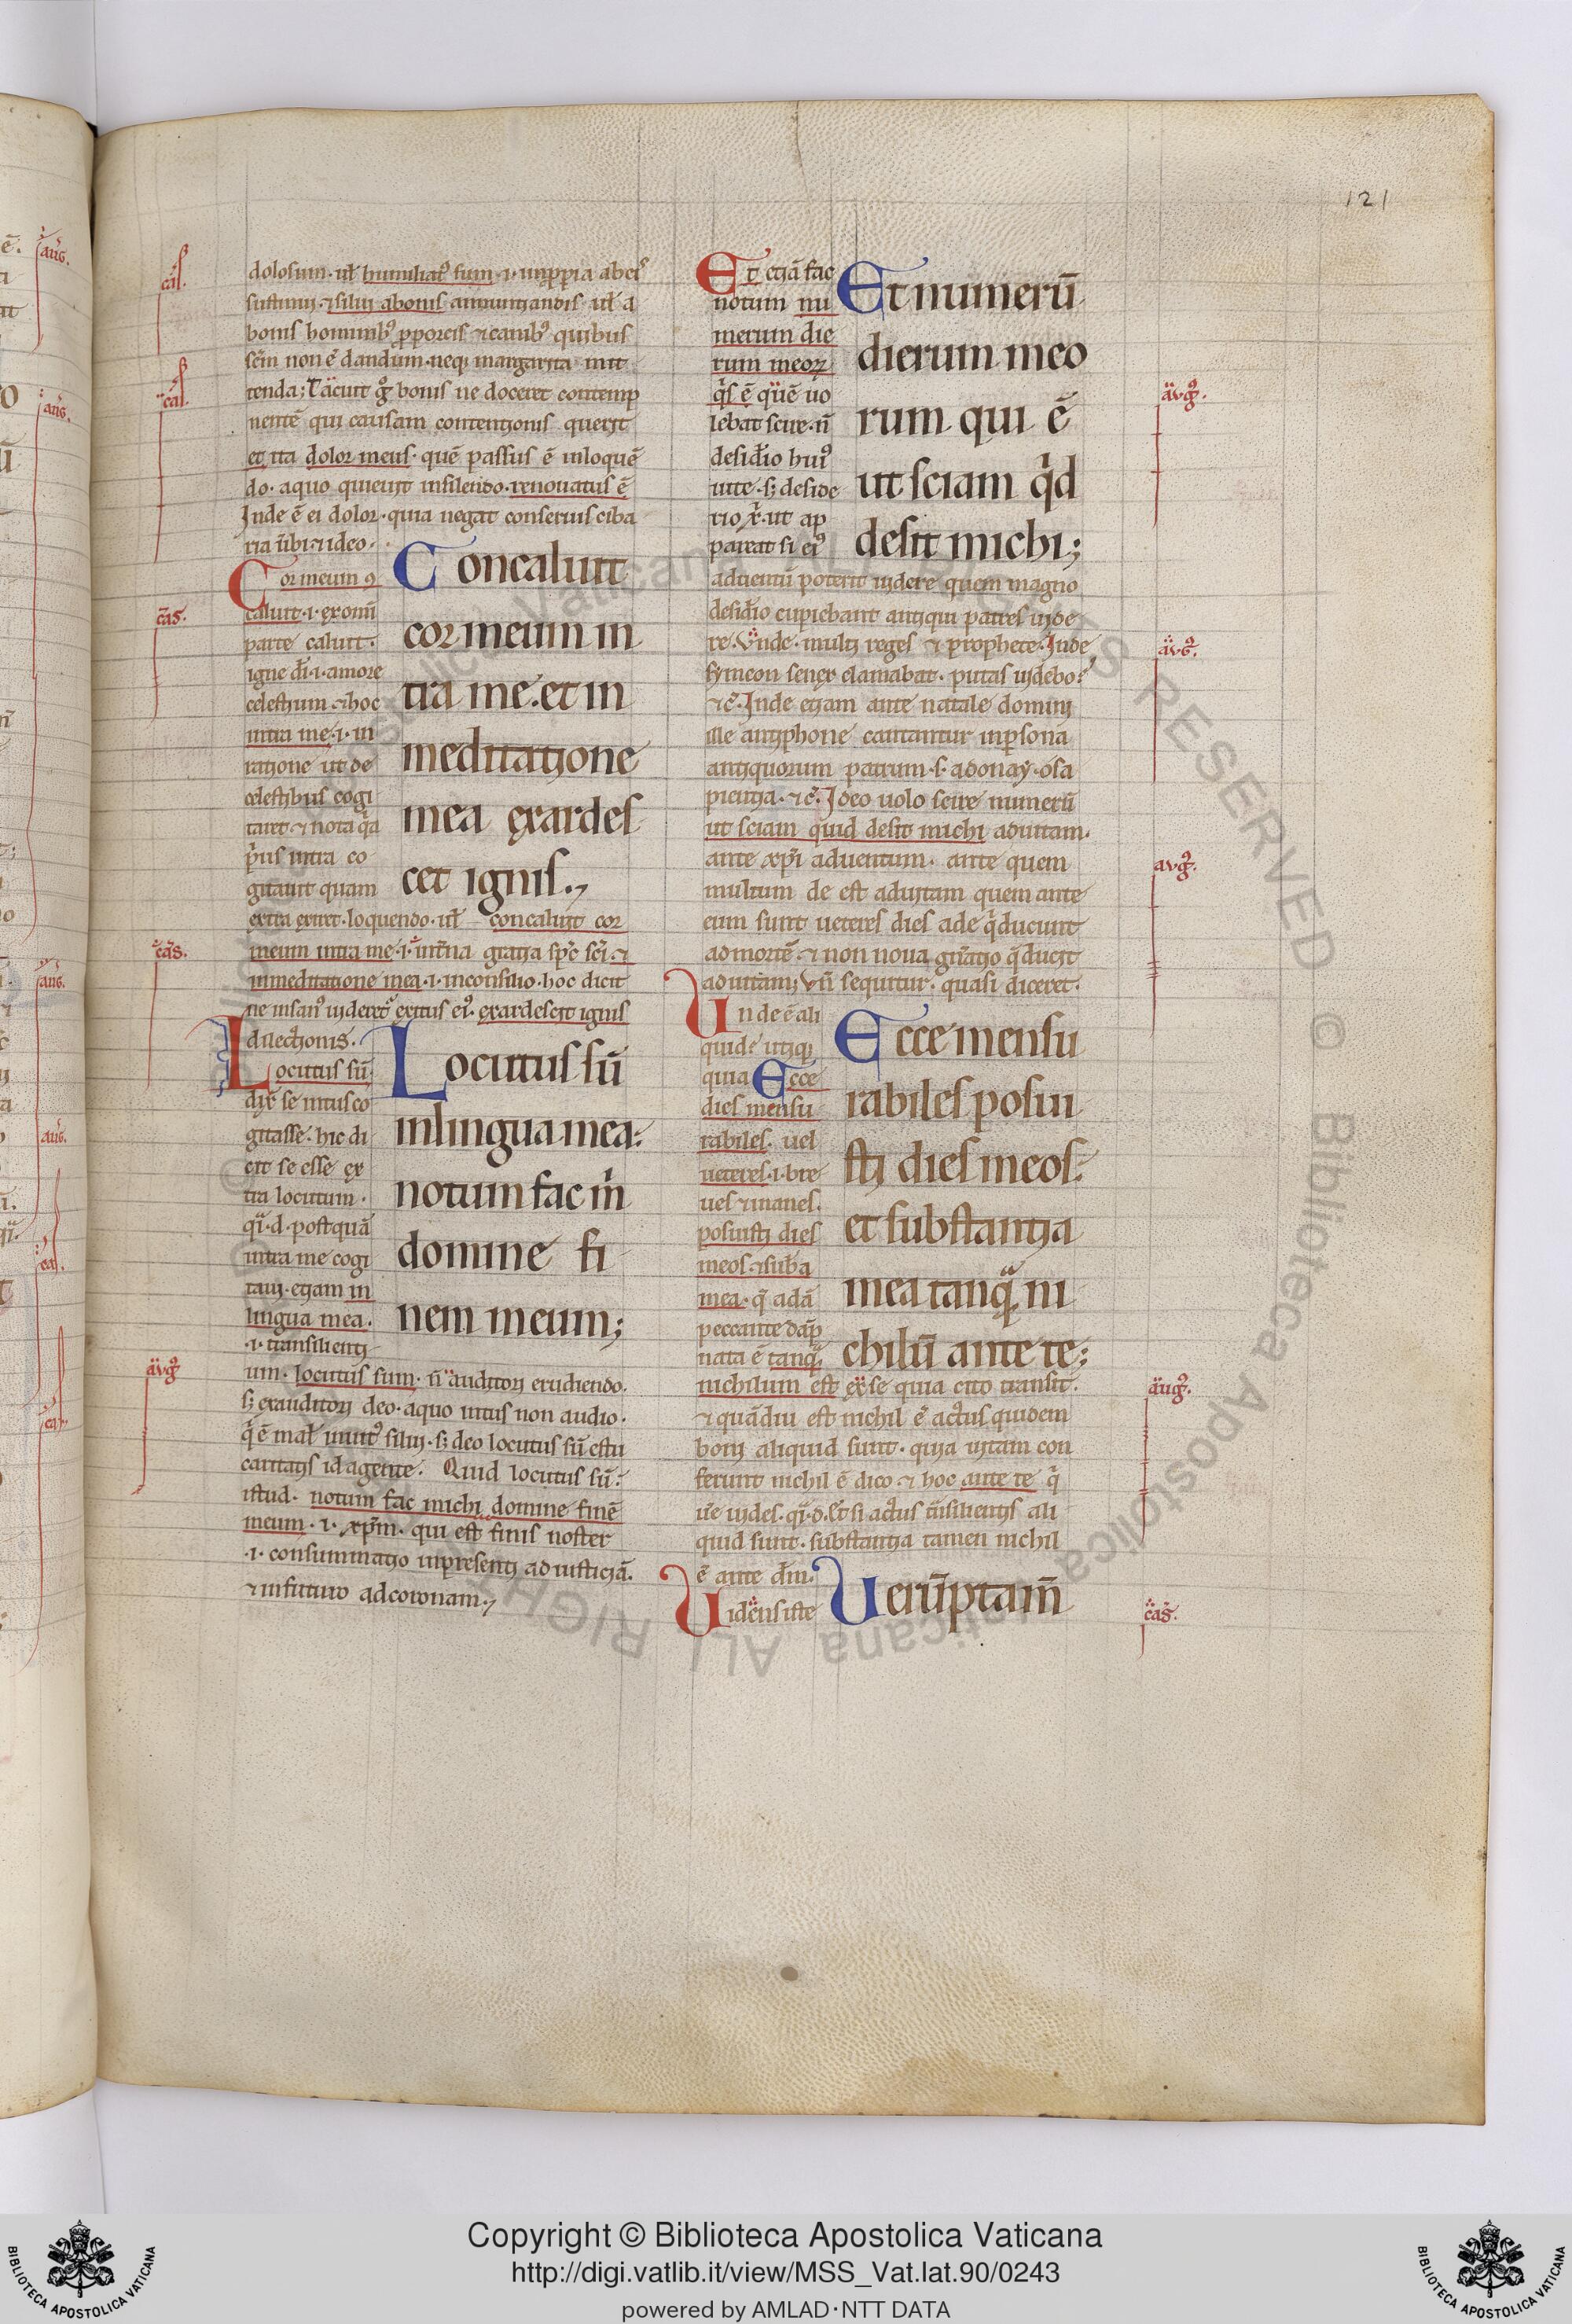 121
dolosum. ul̄ humiliat᷒ sum .i. inp̱pria abei᷒
sustinui. ⁊silui abonis annuntiandis ul̄ a
bonis hominib᷒ p̱porcis ⁊canib᷒ quibus
sc̄m non ē dandum. neq; margarita mit
tenda; Tacuit g̊ bonis ne doceret contemp
nentē qui causam contentionis querit
et ita dolor meus. quē passus ē inloquē
do. aquo quieuit insilendo. renouatus ē
Inde ē ei dolor. quia negat conseruis ciba
ria ⁊ideo.
Concaluit
cor meum in
tra me. et in
meditatione
mea exardes
cet ignis.,
Cor meum ꝯ
caluit .i. exomī
parte caluit.
igne dī .i. amore
celestium ⁊hoc
intra me .i. in
ratione ut de
celestibus cogi
taret ⁊ nota q̄a
p̄us intra co
gitauit quam
extra exiret. loquendo. ul̄ concaluit cor
meum intra me .i. int̄na gratia sp̄c sc̄i. ⁊
inmeditatione mea .i. inconsilio. hoc dicit
ne insan᷒ uideret᷒ exitus ei᷒. exardescit ignis
dilectionis.
Locutus sū
inlingua mea:
notum fac m̄
domine fi
nem meum;
Locutus sū
dix̄ se intus co
gitasse. hic di
cit se esse ex
tra locutum.
q̄i .d. postquā
intra me cogi
taui. etiam in
lingua mea.
.i. transilienti
um. locutus sum. n̄ auditori erudiendo.
s; exauditori deo. aquo intus non audio.
q̄ ē mal̄ silui. s; deo locutus sū estu
caritatis id agente. Quid locutus sū?
istud. notum fac michi domine finē
meum .i. xp̄m. qui est finis noster
.i. consummatio inpresenti ad iusticiā.
⁊ infuturo adcoronam.,
Et etiā fac
notum nu
merum die
rum meoꝝ
q̄s ē quē uo
lebat scire. n̄
desid̄io hui᷒
uite. s; deside
rio x̄. ut ap
pareat si ei᷒
Et numerū
dierum meo
rum qui ē
ut sciam q̄d
desit michi;
aduentū poterit uidere quem magno
desid̄io cupiebant antiqui patres uide
re. Unde. multi reges ⁊ prophete. Inde
symeon senex clamabat. putas uidebo?
⁊c̄. Inde etiam ante natale domini
ille antiphone cantantur inp̱sona
antiquorum patrum .s. adonay. o sa
pientia. ⁊c̄. Ideo uolo scire numerū
ut sciam quid desit michi aduitam.
ante xp̄i aduentum. ante quem
multum de est aduitam quem ante
eum sunt ueteres dies ade q̄ ducunt
admortē. ⁊ non noua gn̄atio q̄ ducit
aduitam; Vn̄ sequitur. quasi diceret.
Unde ē ali
quid utiq;
quia Ecce
dies mensu
rabiles. uel
ueteres .i. bre
ues ⁊inanes.
posuisti dies
meos. ⁊sub̄a
mea. q̄ adā
peccante dāp
nata ē tanq̄;
Ecce mensu
rabiles posui
sti dies meos:
et substantia
mea tanq̄ ni
chilū ante te;
nichilum est exse quia cito transit.
⁊ quādiu est nichil ē actus quidem
boni aliquid sunt. quia uitam con
ferunt nichil ē dico. ⁊ hoc ante te q̄
ue uides. q̄i .d. Et si act᷒us t̄nsilientis ali
quid sunt. substantia tamen nichil
ē ante dm̄.
Uidens iste
Uerūptam̄
cas.
aug᷒.
cas.
aug᷒.
aug᷒.
aug᷒.
aug᷒.
cas.
Copyright © Biblioteca Apostolica Vaticana
http://digi.vatlib.it/view/MSS_Vat.lat.90/0243
powered by AMLAD·NTT DATA
BIBLIOTECA APOSTOLICA VATICANA
BIBLIOTECA APOSTOLICA VATICANA